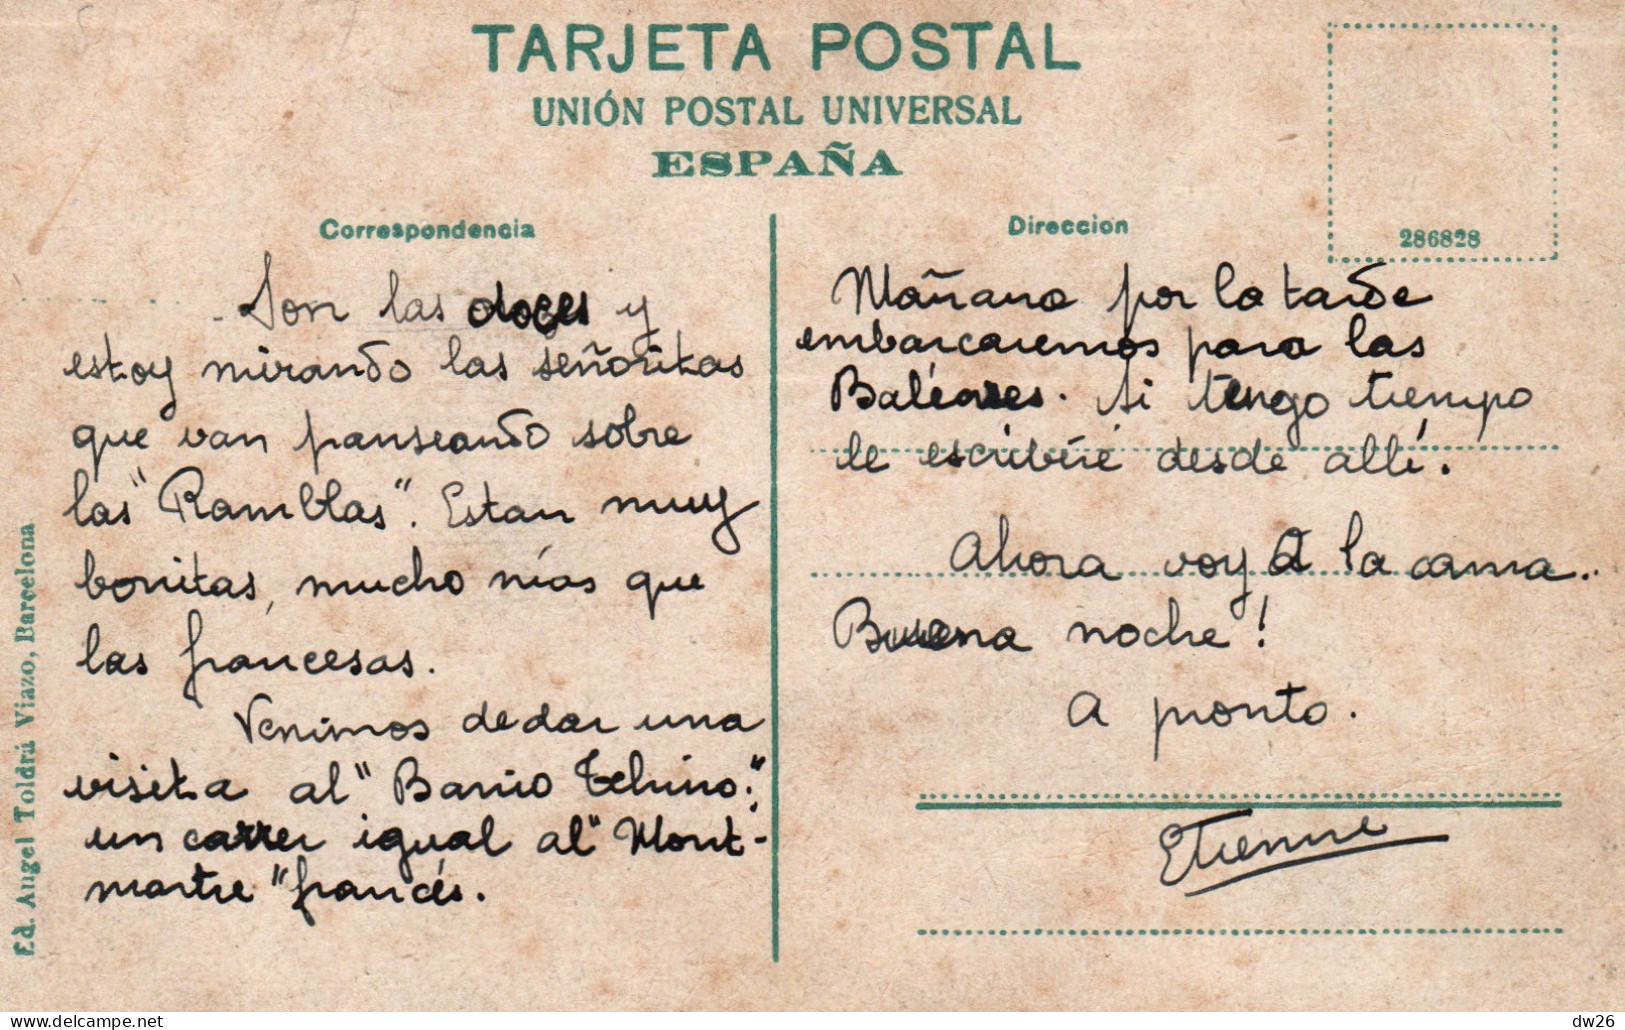 TARJETA POSTAL
UNIÓN POSTAL UNIVERSAL
ESPAÑA
Correspondencia
Son las doces y
estoy mirando las señoritas
que van panseando sobre
las "Ramblas". Estan muy
bonitas, mucho más que
las francesas.
Venimos de dar una
visita al "Barrio Tchino",
un carrer igual al "Mont-
martre" francés.
Direccion
286828
Mañana por la tarde
embarcaremos para las
Baléares. Si tengo tiempo
le escribiré desde allí.
Ahora voy a la cama..
Buena noche!
A pronto.
Etienne
Ed. Angel Toldrá Viazo, Barcelona
dw26